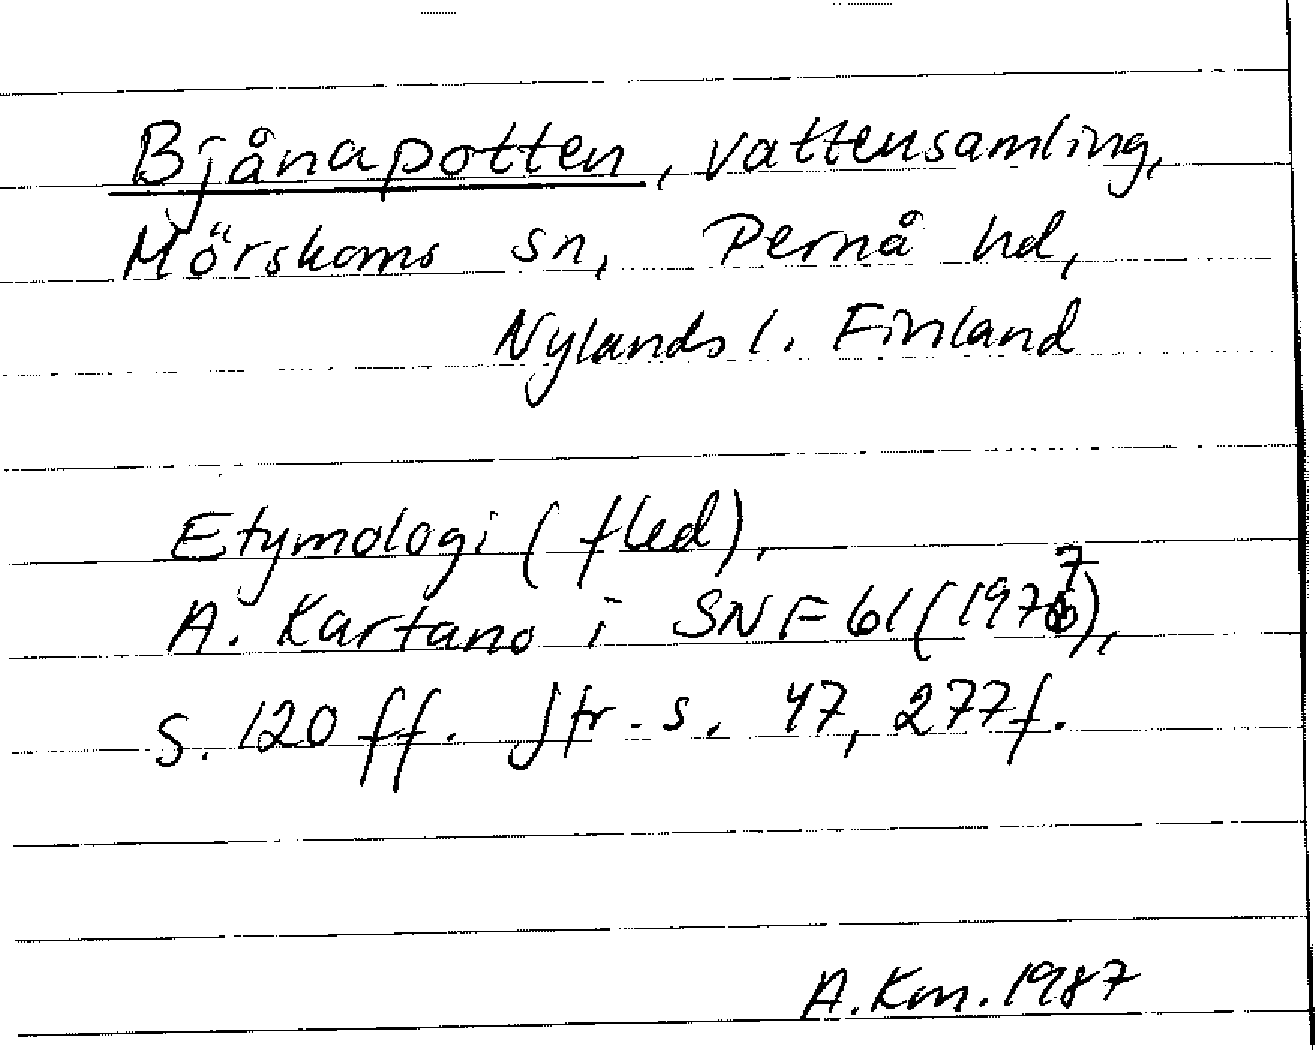 Bjånapotten, vattensamling,
Mörskoms sn, Pernå hd,
Nylands l. Finland
Etymologi (fled).
A. Kartano i SNF 61 (1977),
s. 120 ff. Jfr s. 47, 277f.
A.Km. 1987